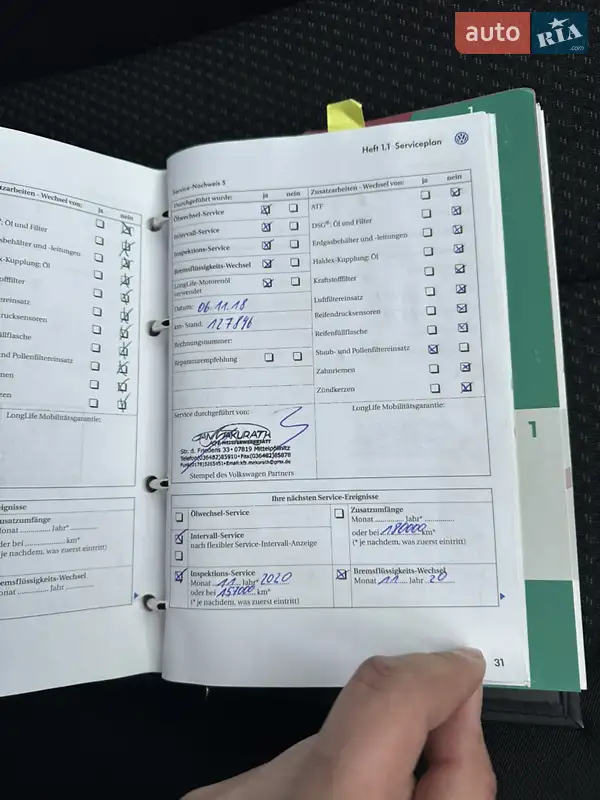 auto RIA .com
Heft 1.1 Serviceplan
1
Service-Nachweis 5
Durchgeführt wurde: ja nein
Ölwechsel-Service
Intervall-Service
Inspektions-Service
Bremsflüssigkeits-Wechsel
LongLife-Motorenöl
verwendet
Datum: 06.11.18
km-Stand: 127896
Rechnungsnummer:
Reparaturempfehlung
Zusatzarbeiten - Wechsel von: ja nein
ATF
DSG®: Öl und Filter
Erdgasbehälter und -leitungen
Haldex-Kupplung: Öl
Kraftstofffilter
Luftfiltereinsatz
Reifendrucksensoren
Reifenfüllflasche
Staub- und Pollenfiltereinsatz
Zahnriemen
Zündkerzen
Service durchgeführt von:
LongLife Mobilitätsgarantie:
Str. d. Friedens 33 • 07819 Mittelpöllnitz
Telefon(036482)85910 • Fax(036482)85878
Stempel des Volkswagen Partners
Ihre nächsten Service-Ereignisse
Ölwechsel-Service
Intervall-Service
nach flexibler Service-Intervall-Anzeige
Inspektions-Service
Monat 11 Jahr* 2020
oder bei 157000 km*
(* je nachdem, was zuerst eintritt)
Zusatzumfänge
Monat Jahr*
oder bei 180000 km*
(* je nachdem, was zuerst eintritt)
Bremsflüssigkeits-Wechsel
Monat 11 Jahr 20
31
1
zarbeiten - Wechsel von: ja nein
Öl und Filter
sbehälter und -leitungen
x-Kupplung: Öl
tofffilter
ltereinsatz
drucksensoren
üllflasche
nd Pollenfiltereinsatz
men
zen
LongLife Mobilitätsgarantie:
eignisse
usatzumfänge
onat Jahr*
er bei km*
je nachdem, was zuerst eintritt)
emsflüssigkeits-Wechsel
onat Jahr